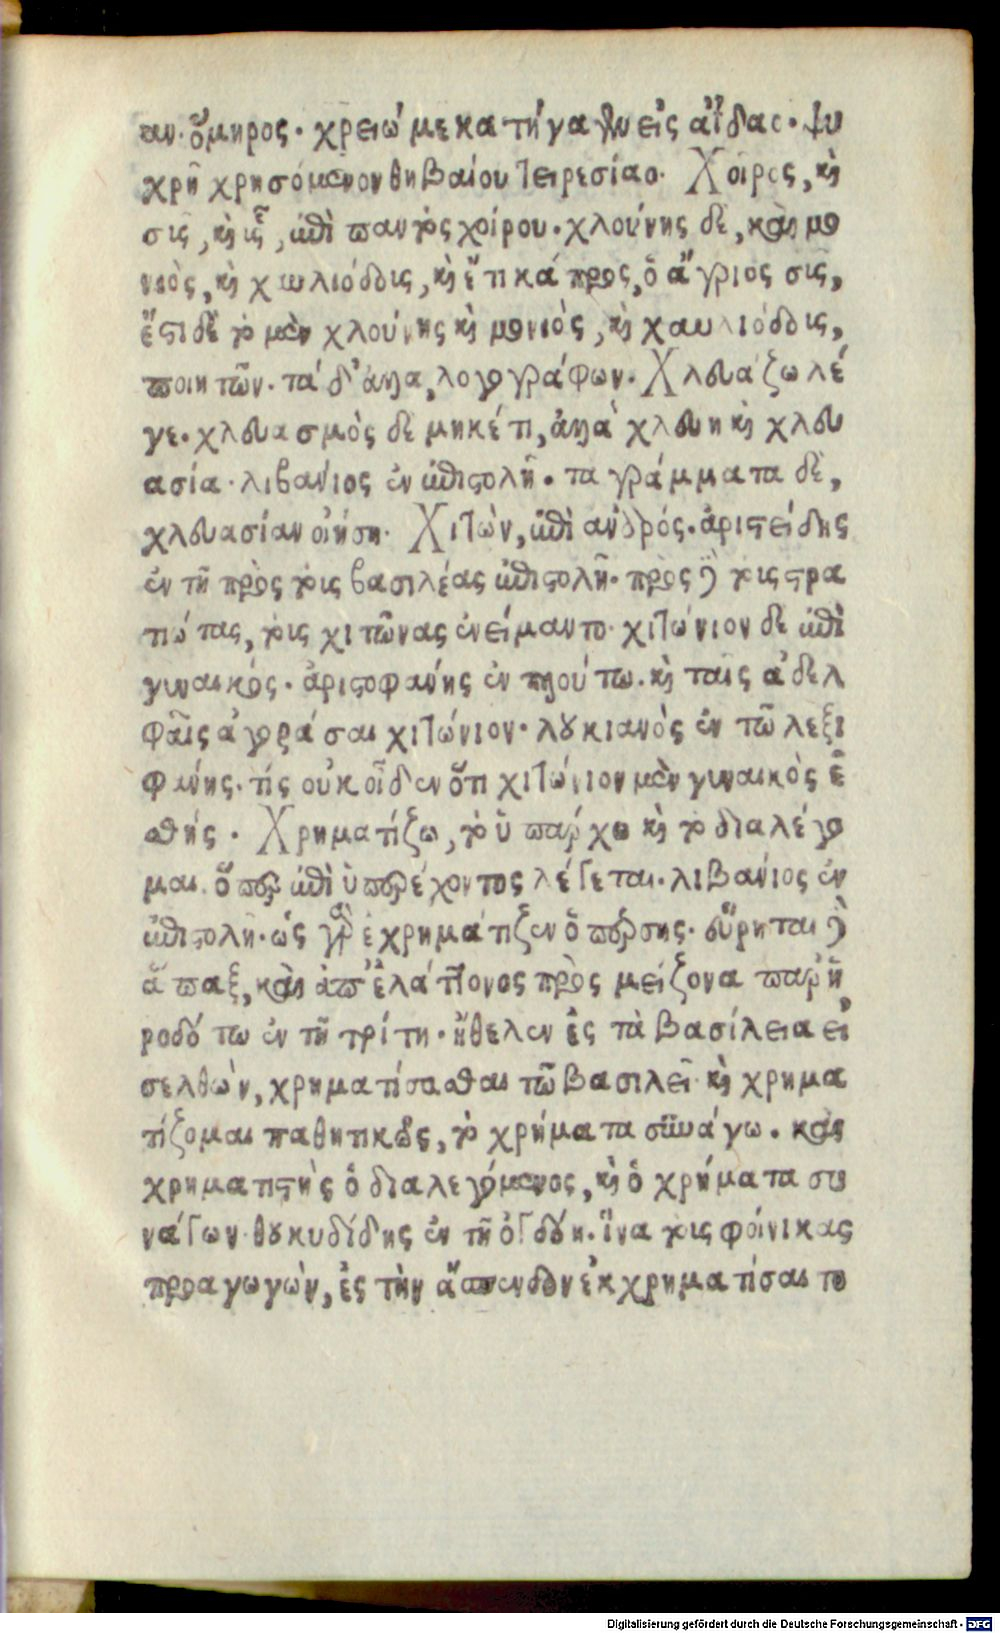 αν. ὅμηρος. χρειώ με κατήγαγεν εἰς ἀΐδαο. ψυ
χῇ χρησόμενον θηβαίου τειρεσίαο. Χοῖρος, καὶ
σῦς, καὶ ὗς, ἐπὶ παντὸς χοίρου. χλούνης δὲ, καὶ μο
νιὸς, καὶ χαυλιόδους, καὶ ἔτι κάπρος, ὁ ἄγριος σῦς,
ἔστι δὲ τὸ μὲν χλούνης καὶ μονιὸς, καὶ χαυλιόδους,
ποιητῶν. τὰ δ' ἄλλα, λογογράφων. Χλευάζω λέ
γε. χλευασμὸς δὲ μηκέτι, ἀλλὰ χλεύη καὶ χλευ
ασία. λιβανίος ἐν ἐπιστολῇ. τα γράμματα δὲ,
χλευασίαν οἰήσῃ. Χιτὼν, ἐπὶ ἀνδρός. ἀριστείδης
ἐν τῇ πρὸς τοὺς βασιλέας ἐπιστολῇ. πρὸς δὲ τοὺς στρα
τιώτας, τοὺς χιτῶνας ἐνείμαντο. χιτώνιον δὲ ἐπὶ
γυναικός. ἀριστοφάνης ἐν πλούτω. καὶ ταῖς ἀδελ
φαῖς ἀγοράσαι χιτώνιον. λουκιανὸς ἐν τῶ λεξι
φάνης. τίς οὐκ οἶδεν ὅτι χιτώνιον μὲν γυναικὸς ἐ
σθής. Χρηματίζω, τὸ ὑπάρχω καὶ τὸ διαλέγο
μαι. ὅπερ ἐπὶ ὑπερέχοντος λέγεται. λιβανίος ἐν
ἐπιστολῇ. ὡς γὰρ ἐχρημάτιζεν ὁ πέρσης. εὕρηται δὲ
ἅπαξ, καὶ ἀπ' ἐλάττονος πρὸς μείζονα παρ' ἡ
ροδότω ἐν τῇ τρίτη. ἤθελεν ἐς τὰ βασίλεια εἰ
σελθὼν, χρηματίσασθαι τῶ βασιλεῖ. καὶ χρημα
τίζομαι παθητικῶς, τὸ χρήματα συνάγω. καὶ
χρηματιστὴς ὁ διαλεγόμενος, καὶ ὁ χρήματα συ
νάγων. θουκυδίδης ἐν τῇ ὀγδόη. ἵνα τοὺς φοίνικας
προαγωγὼν, ἐς τὴν ἄσπενδον ἐκχρηματίσαιτο
Digitalisierung gefördert durch die Deutsche Forschungsgemeinschaft - DFG